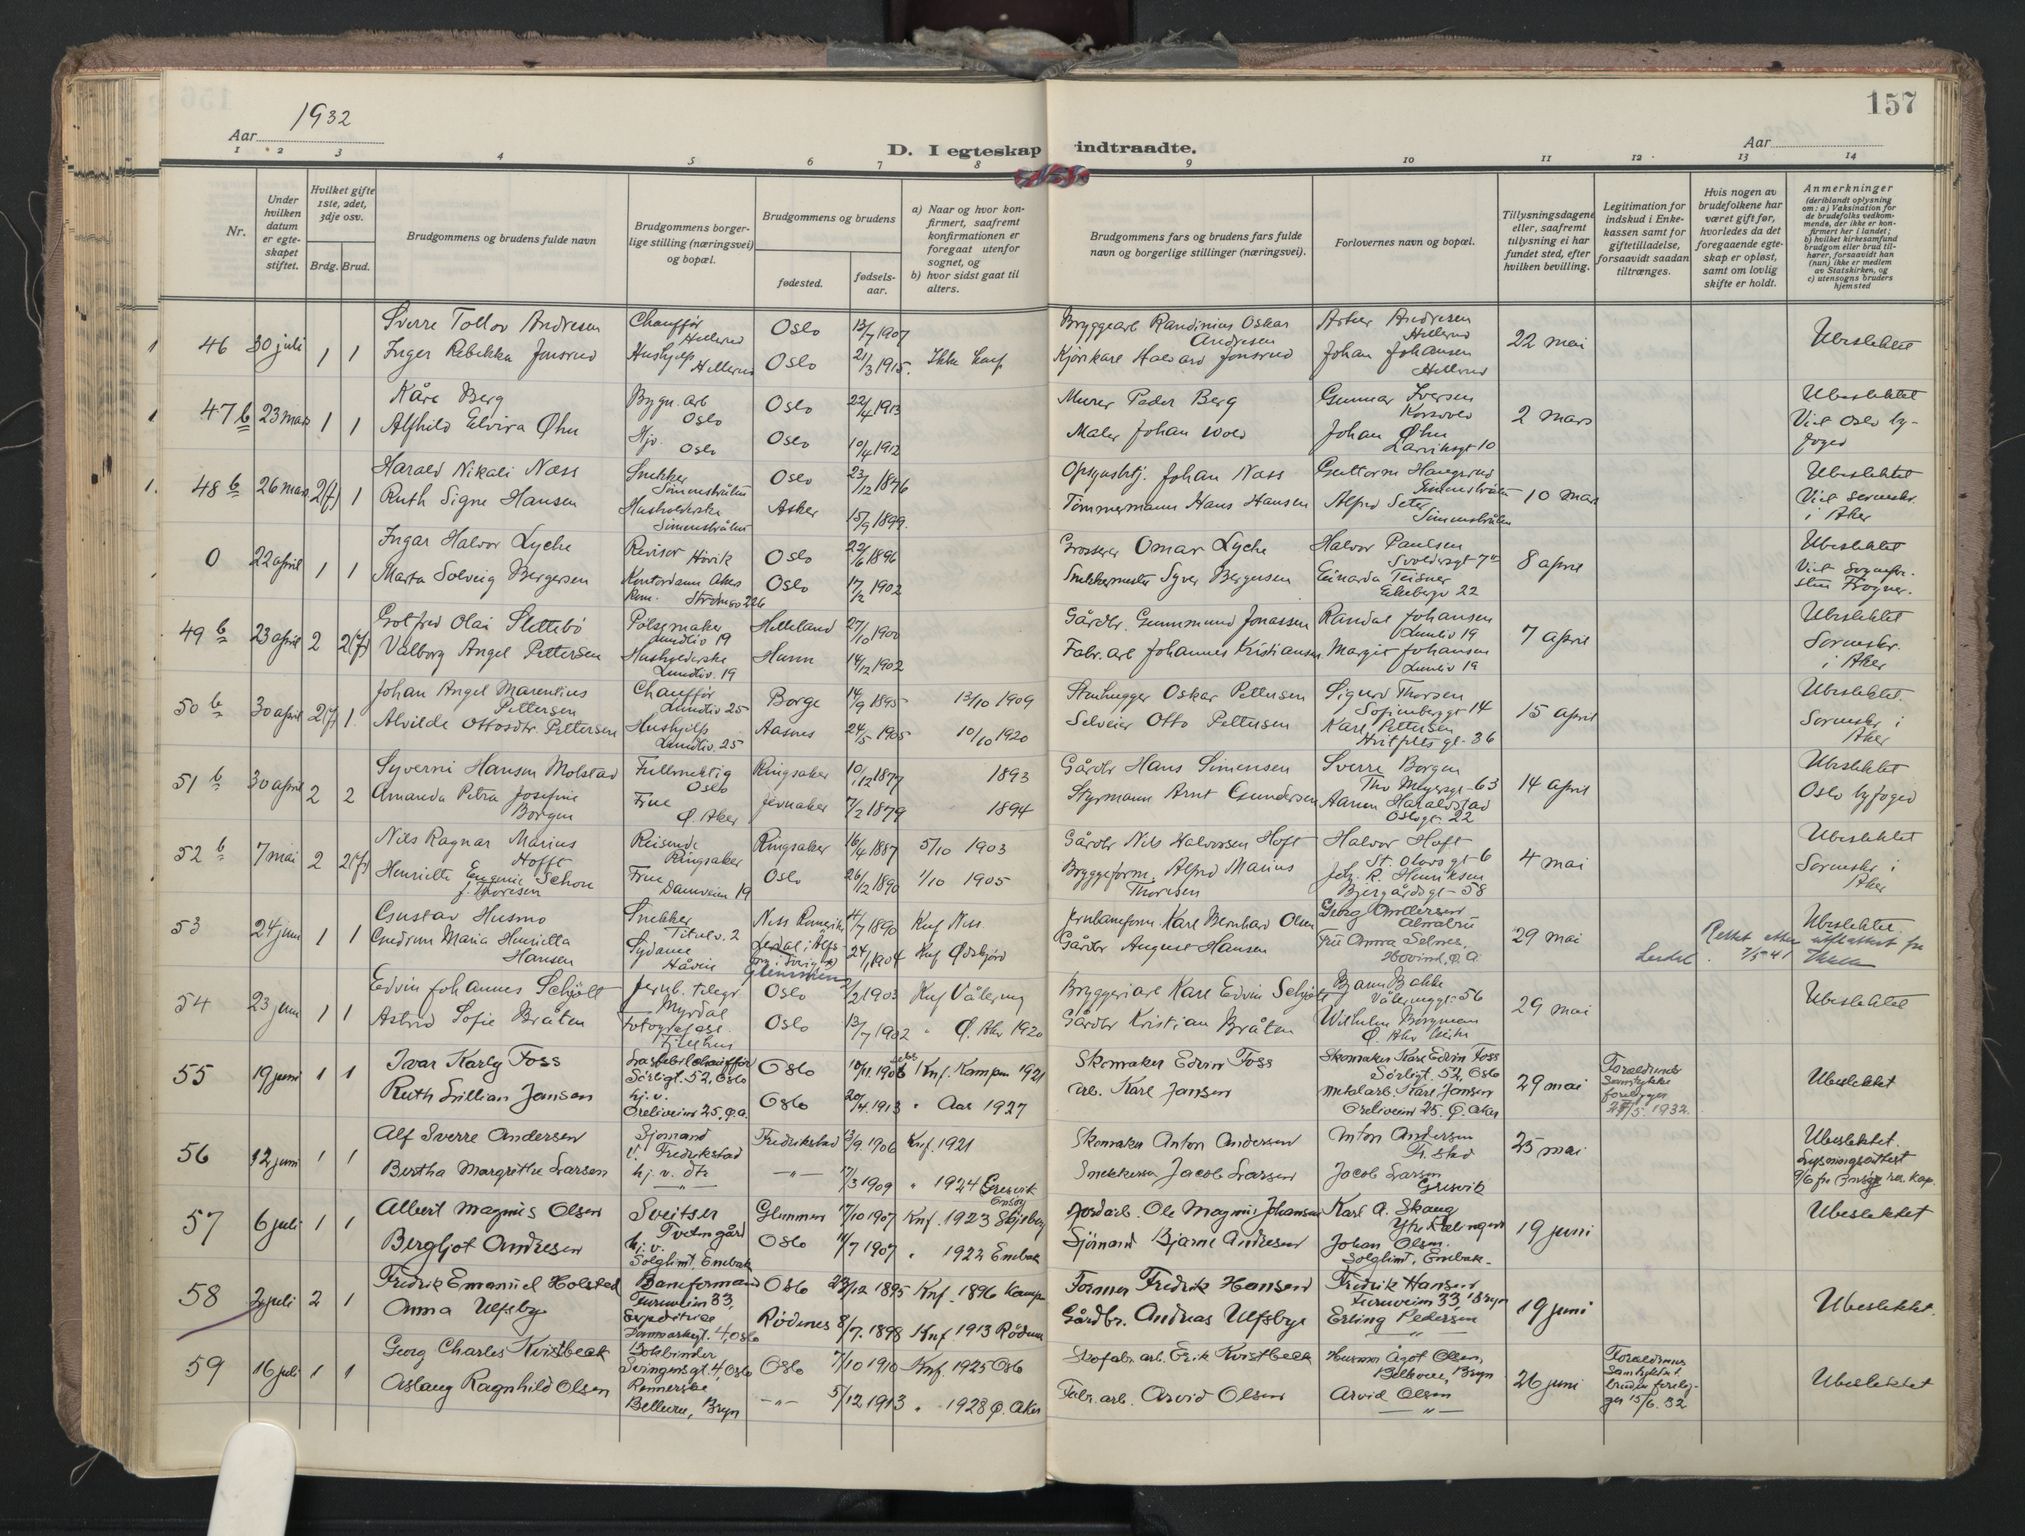 1932
157
Aar
D. I egteskap indtraadte.
Aar
1 2 3 4 5 6 7 8 9 10 11 12 13 14
Nr.
Under hvilken datum er egteskapet stiftet.
Hvilket gifte 1ste, 2det, 3dje osv.
Brdg. Brud.
Brudgommens og brudens fulde navn
Brudgommens borgerlige stilling (næringsvei) og bopæl.
Brudgommens og brudens
fødested.
fødselsaar.
a) Naar og hvor konfirmert, saafremt konfirmationen er foregaat utenfor sognet, og
b) hvor sidst gaat til alters.
Brudgommens fars og brudens fars fulde navn og borgerlige stillinger (næringsvei).
Forlovernes navn og bopæl.
Tillysningsdagene eller, saafremt tillysning ei har fundet sted, efter hvilken bevilling.
Legitimation for indskud i Enkekassen samt for giftetilladelse, forsaavidt saadan tiltrænges.
Hvis nogen av brudefolkene har været gift før, hvorledes da det foregaaende egteskap er opløst, samt om lovlig skifte er holdt.
Anmerkninger (deriblandt oplysning om: a) Vaksination for de brudefolks vedkommende, der ikke er konfirmert her i landet; b) hvilket kirkesamfund brudgom eller brud tilhører, forsaavidt han (hun) ikke er medlem av Statskirken, og c) utensogns bruders hjemsted
46 30 juli 1 1 Sverre Tollov Andresen Chauffør Hellerud Oslo 13/7 1907 Bryggearb Randinius Oskar Andresen Andresen Hellerud 22 mai Ubeslektet
Inger Rebekka Jonsrud Hushjelp Hellerud Oslo 21/3 1915. Ikke konf Kjørekare Halvard Jonsrud Johan Johansen Hellerud
47 b 23 mars 1 1 Kåre Berg Bygn. arb Oslo Oslo 22/4 1913 Murer Peder Berg Gunnar Iversen 2 mars Ubeslektet
Alfhild Elvira Øhn Hjv. Oslo Oslo 10/4 1912 Maler Johan Johan Øhn Larviksgt 10 Viet Oslo byfoged
48 b 26 mars 2(f) 1 Harald Nikolai Næss Snekker Oslo 23/12 1896 Johan Næss 10 mars Ubeslektet
Ruth Signe Hansen Husholderske Asker 15/9 1899. Tømmermann Hans Hansen Alfred Seter Viet Sorenskr. i Aker
0 22 april 1 1 Ingar Halvor Lyche Revisor Høvik Oslo 22/6 1896 Grosserer Omar Lyche Halvor Paulsen 8 april Ubeslektet
Marta Solveig Bergersen Kontordame Oslo 17/2 1902 Snekkermester Syver Bergersen Einarda Teisner Ekeberg 22 Viet Frogner.
49 b 23 april 2 2(f) Gotfred Olai Slettebø Polermaker Lundliv 19 Helleland 27/10 1900 Gårdbr. Gunnmund Jonassen Randal Johansen Lundliv 19 7 april Ubeslektet
Valborg Angel Pettersen Husholderske Lundliv. 19 Hurum 14/12 1902 Fabr. arb Johannes Kristiansen Margit Johansen Lundliv 19 Sorenskr. i Aker
50 b 30 april 2(f) 1. Johan Angel Marentius Pettersen Chauffør Lundliv 25 Borge 14/9 1895 13/10 1909 Stenhugger Oskar Pettersen Sigurd Thorsen Sofienberggt 14 15 april Ubeslektet.
Alvilde Ottosdtr. Pettersen Hushjelp Lundliv. 25 Aasnes 24/5 1905 10/10 1920 Selveier Otto Pettersen Karl Pettersen Hvitfelts gt. 36 Sorenskr i Aker
51 b 30 april 2 2 Syverin Hansen Molstad Fullmektig Oslo Ringsaker 10/12 1877 1893 Gårdbr Hans Simensen Sverre Borgen Tho Meyersgt 63 14 april Ubeslektet
Amanda Petra Josefine Borgen Frue Ø. Aker Jevnaker 7/2 1879 1894 Styrmann Arnt Gundersen Aanon Haraldstad Oslogt 22 Oslo byfoged
52 b 7 mai 2 2(f) Nils Ragnar Marius Hofft Reisende Ringsaker Ringsaker 16/4 1887 5/10 1903 Gårdbr Nils Halvorsen Hoft Halvor Hoft St. Olavsgt 6 4 mai Ubeslektet
Henriette Eugenie Schou f. Thoresen Frue Damveien 19 Oslo 26/12 1890 1/10 1905 Bryggeform. Alfred Marius Thoresen Joh. R. Henriksen Bjergårdsgt 58 Sorenskr i Aker
53 24 juni 1 1 Gustav Husmo Snekker 2 Nes Romerike 4/7 1890 Knf Nes Jernbaneform Karl Bernhard Olsen Georg Andersen 29 mai Ubeslektet.
Gudrun Maria Henrietta Hansen Sydame Håvin Glemmen 24/1 1904 Knf Ødskjörd Gårdbr August Hansen Fru Anna Selmer, Hovind, Ø. A. Rettet etter 7/5 41
54 23 juni 1 1 Edvin Johannes Schjølt Jernb. telegr Myrdal Oslo 2/2 1903 Knf Vålereng Bryggeriarb Karl Edvin Schjølt Bjarne Bakke Vålerenggt. 56 29 mai Ubeslektet
Astrid Sofie Bråten Fotografass. Oslo 13/7 1902 " Ø. Aker 1920 Gårdbr Kristian Bråten Wilhelm Borgman
55 19 juni 1 1 Ivar Karly Foss Lastebilchauffør Sørligt. 52, Oslo Oslo 10/11. 1906 Knf. Kampen 1921 Skomaker Edvin Foss Skomaker Karl Edvin Foss Sørligt. 52, Oslo 29 mai Foreldrenes samtykke foreligger 27/5. 1932. Ubeslektet
Ruth Lillian Jansen hj. v. Oreliveien 25, Ø. A. Oslo 20/4. 1913 " Aar 1927 arb. Karl Jansen Metalarb. Karl Jansen Oreliveien 25. Ø. Aker
56 12 juni 1 1 Alf Sverre Andersen Sjömand V. Fredrikstad Fredrikstad 13/9 1906 Knf. 1921 Skomaker Anton Andersen Anton Andersen Fr. stad 25 mai Ubeslektet.
Bertha Margrethe Larsen hj. v. dtr —"— 17/3 1909 " 1924 Gresvik Onsöy Snekker Jacob Larsen Jacob Larsen Gresvik Lysningsattest 9/6 fra Onsøy res. kap.
57 6 juli 1 1 Albert Magnus Olsen Sveitser Tveten gård Glemmen 7/10 1907 Knf. 1923 Skjeberg Jordarb. Ole Magnus Johansen Karl A. Skaug 19 juni Ubeslektet
Bergljot Andresen hj. v. Solglimt, Enebak Oslo 11/7 1907 " 1922 Enebak Sjömand Bjarne Andresen Johan Olsen. Solglimt, Enebak
58 2 juli 2 1 Fredrik Emanuel Holstad Baneformand Furuveien 33, Oslo 23/12 1895 Knf. 1896 Kampen Former Fredrik Hansen Fredrik Hansen Furuveien 33, Bryn 19 juni Ubeslektet.
Anna Ulfsbye Expeditrice 4, Oslo Rødenes 8/7. 1898 Knf. 1913 Rødenes Gårdbr. Andreas Ulfsbye Erling Pedersen —"—
59 16 juli 1 1 Georg Charles Kvistbeck Bokbinder Svingensgt. 4, Oslo Oslo 7/10 1910 Knf. 1925 Oslo Skofabr. arb. Erik Kvistbeck Husmor Ågot Olsen, Bellevue, Bryn 26 juni Foreldrenes samtykke t. bruden foreligger 15/6. 32 Ubeslektet
Aslaug Ragnhild Olsen Rennerske Bellevue, Bryn —"— 5/12 1913 " 1928 Ø. Aker Fabr. arb. Arvid Olsen Arvid Olsen —"—